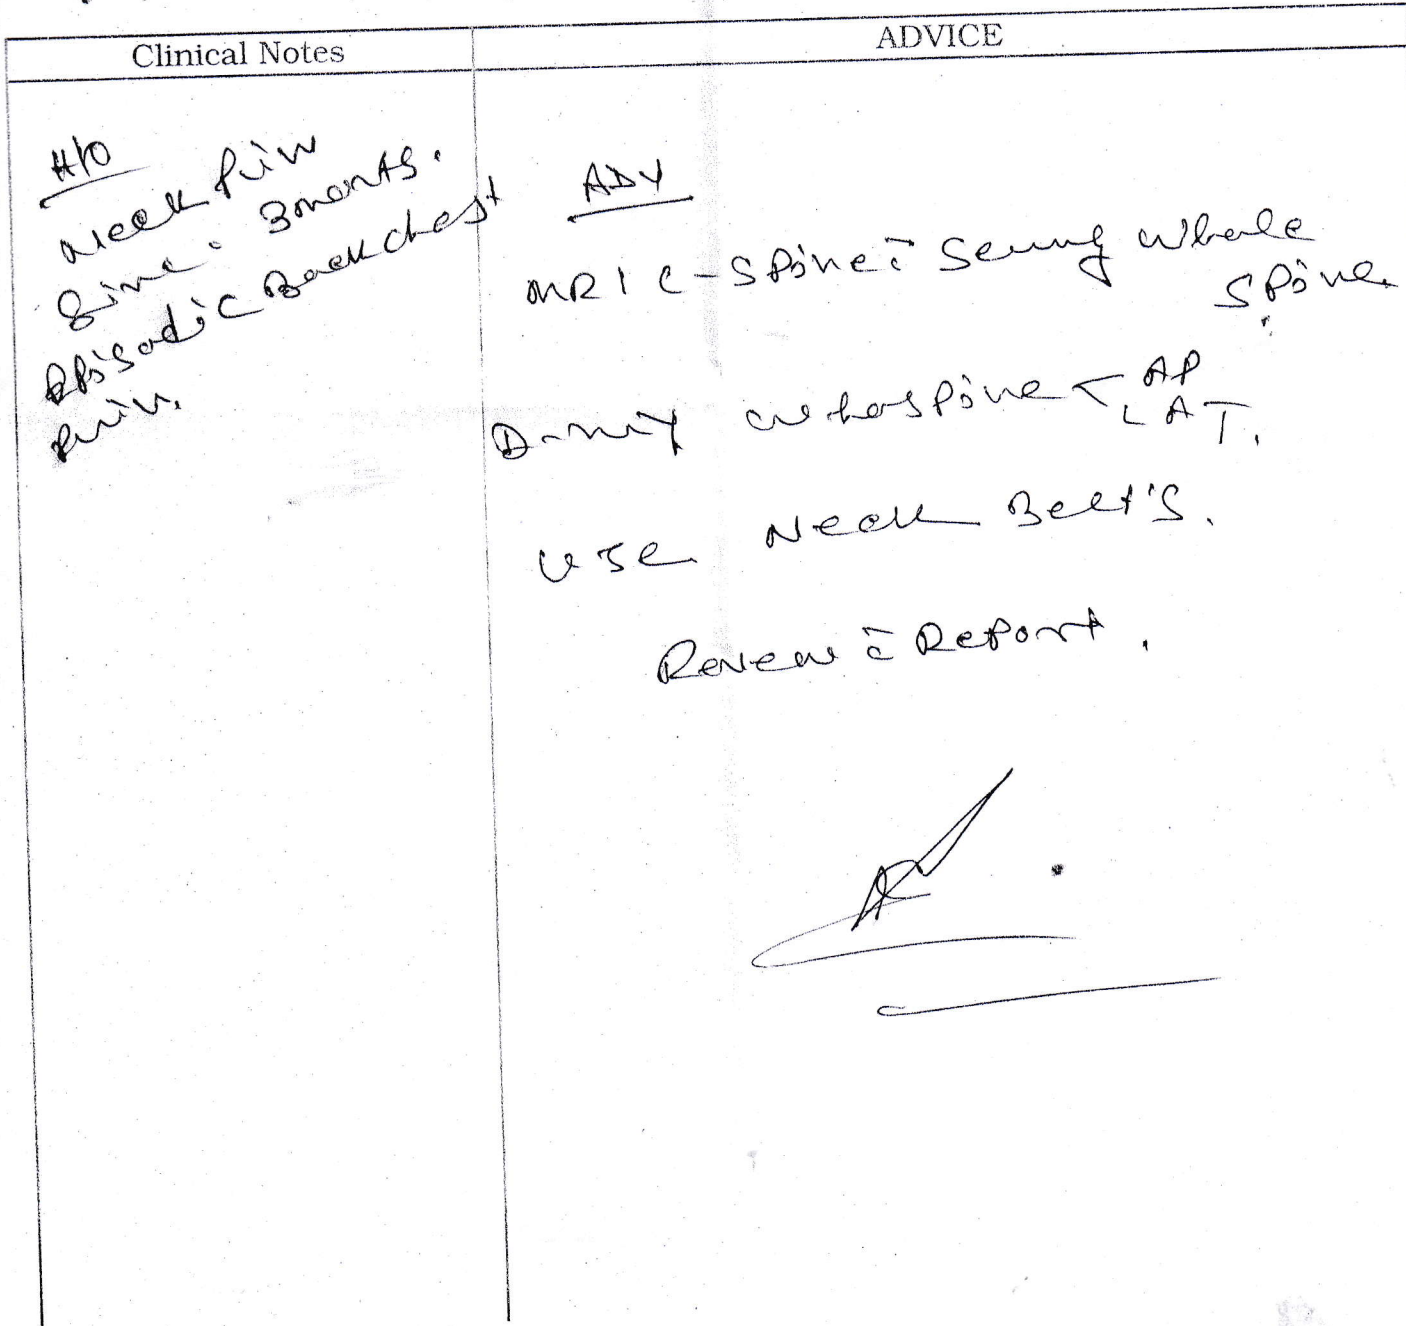 Clinical Notes
ADVICE
H/O
Neck Pain
Since 3 months.
Episodic Back chest
Pain.
ADV
MRI C-Spine c̄ Screening Whole
Spine.
whole spine < AP
LAT.
Use Neck Belt's.
Review c̄ Report.